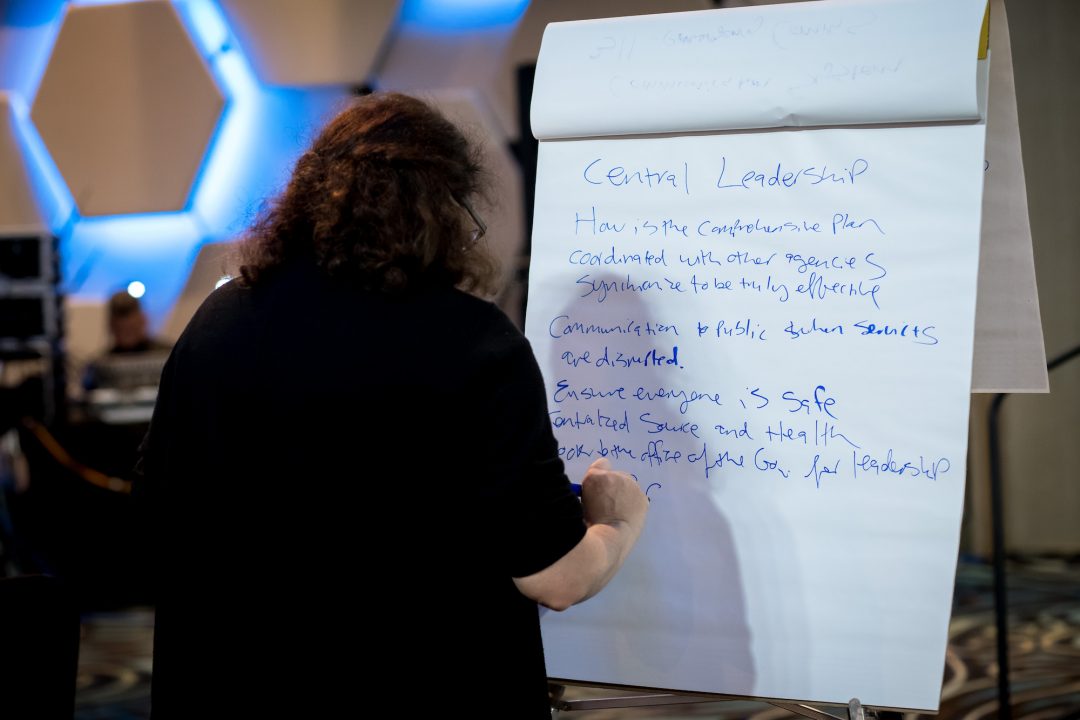 Central Leadership
How is the Comprehensive Plan
coordinated with other agencies
Synchronize to be truly effective
Communication to public when services
are disrupted.
Ensure everyone is safe
Source and Health
to the office of the Gov. for leadership